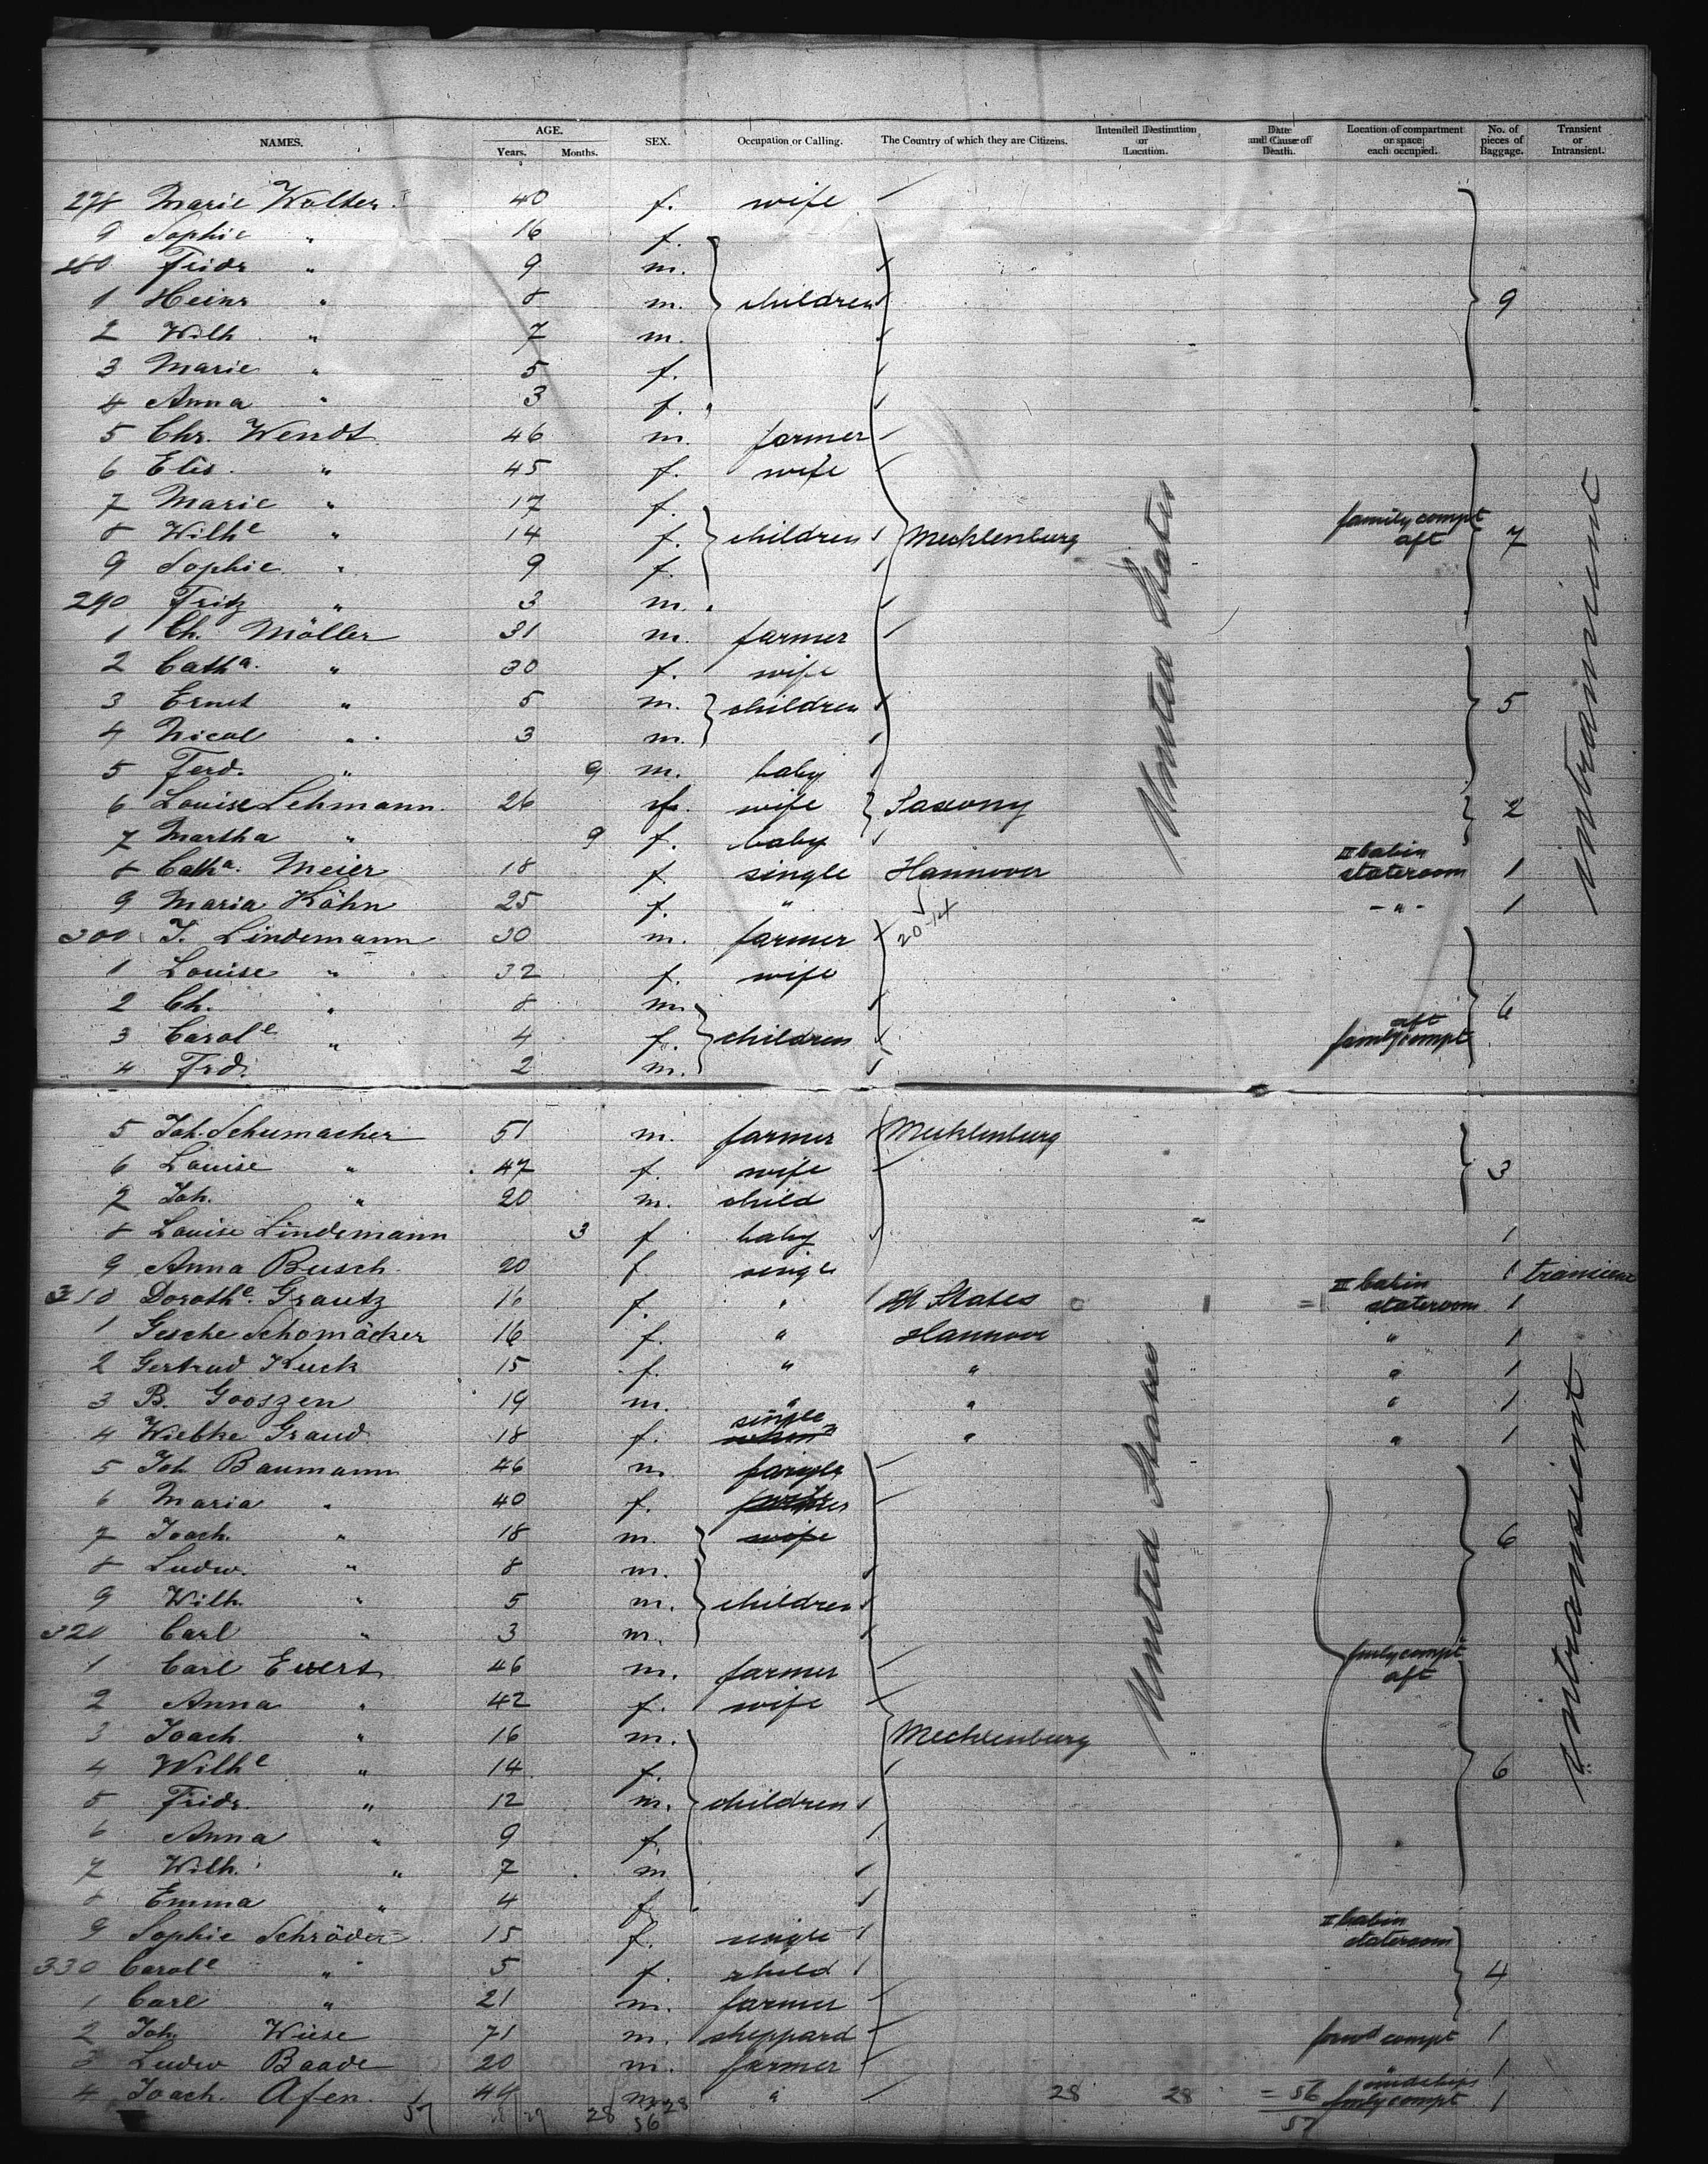 NAMES. AGE. Years. Months. SEX. Occupation or Calling. The Country of which they are Citizens. Intended Destination or Location. Date and Cause of Death. Location of compartment or space each occupied. No. of pieces of Baggage. Transient or Intransient.
278 Marie Wolter 40 f. wife
9 Sophie " 16 f.
280 Fridr " 9 m.
1 Heinr " 8 m. children 9
2 Wilh " 7 m.
3 Marie " 5 f.
4 Anna " 3 f.
5 Chr. Wendt 46 m. farmer
6 Elis. " 45 f. wife
7 Marie " 17 f.
8 Wilhe " 14 f. children Mecklenburg United States family compt aft 7 intransient
9 Sophie " 9 f.
290 Fritz " 3 m.
1 Ch. Möller 31 m. farmer
2 Catha. " 30 f. wife
3 Ernst " 5 m. children 5
4 Nicol " 3 m.
5 Ferd. " 9 m. baby
6 Louise Lehmann 26 f. wife Saxony 2
7 Martha " 9 f. baby
8 Catha. Meier 18 f. single Hannover II Cabin stateroom 1
9 Maria Köhn 25 f. " - " - 1
300 J. Lindemann 30 m. farmer 20-14
1 Louise " 32 f. wife
2 Ch. " 8 m. 6
3 Carole " 4 f. children aft family compt
4 Frd. 2 m.
5 Joh. Schumacher 51 m. farmer Mecklenburg
6 Louise " 47 f. wife 3
7 Joh. " 20 m. child
8 Louise Lindemann 3 f baby 1
9 Anna Busch 20 f. single 1 transient
310 Dorothe. Grautz 16 f. " States II Cabin stateroom 1
1 Gesche Schomäcker 16 f. " Hannover " 1
2 Gertrud Kuck 15 f. " " " 1
3 B. Gooszen 19 m. " " " 1
4 Wiebke Graud 18 f. single " " 1
5 Joh Baumann 46 m
6 Maria " 40 f.
7 Joach. " 18 m. wife 6
8 Ludw. " 8 m.
9 Wilh. " 5 m. children United States intransient
320 Carl " 3 m.
1 Carl Ewers 46 m. farmer fmly compt aft
2 Anna " 42 f. wife
3 Joach. " 16 m. Mecklenburg
4 Wilhe " 14 f. 6
5 Fridr. " 12 m. children
6 Anna " 9 f.
7 Wilh. " 7 m
8 Emma " 4 f.
9 Sophie Schröder 15 f. single II Cabin stateroom
330 Carole " 5 f. child 4
1 Carl " 21 m. farmer
2 Joh. Wiese 71 m. sheppard forwd compt 1
3 Ludw Baade 20 m. farmer " 1
4 Joach. Afen. 44 m " 28 28 = 56 midships fmly compt 1
57 28 56 28 57